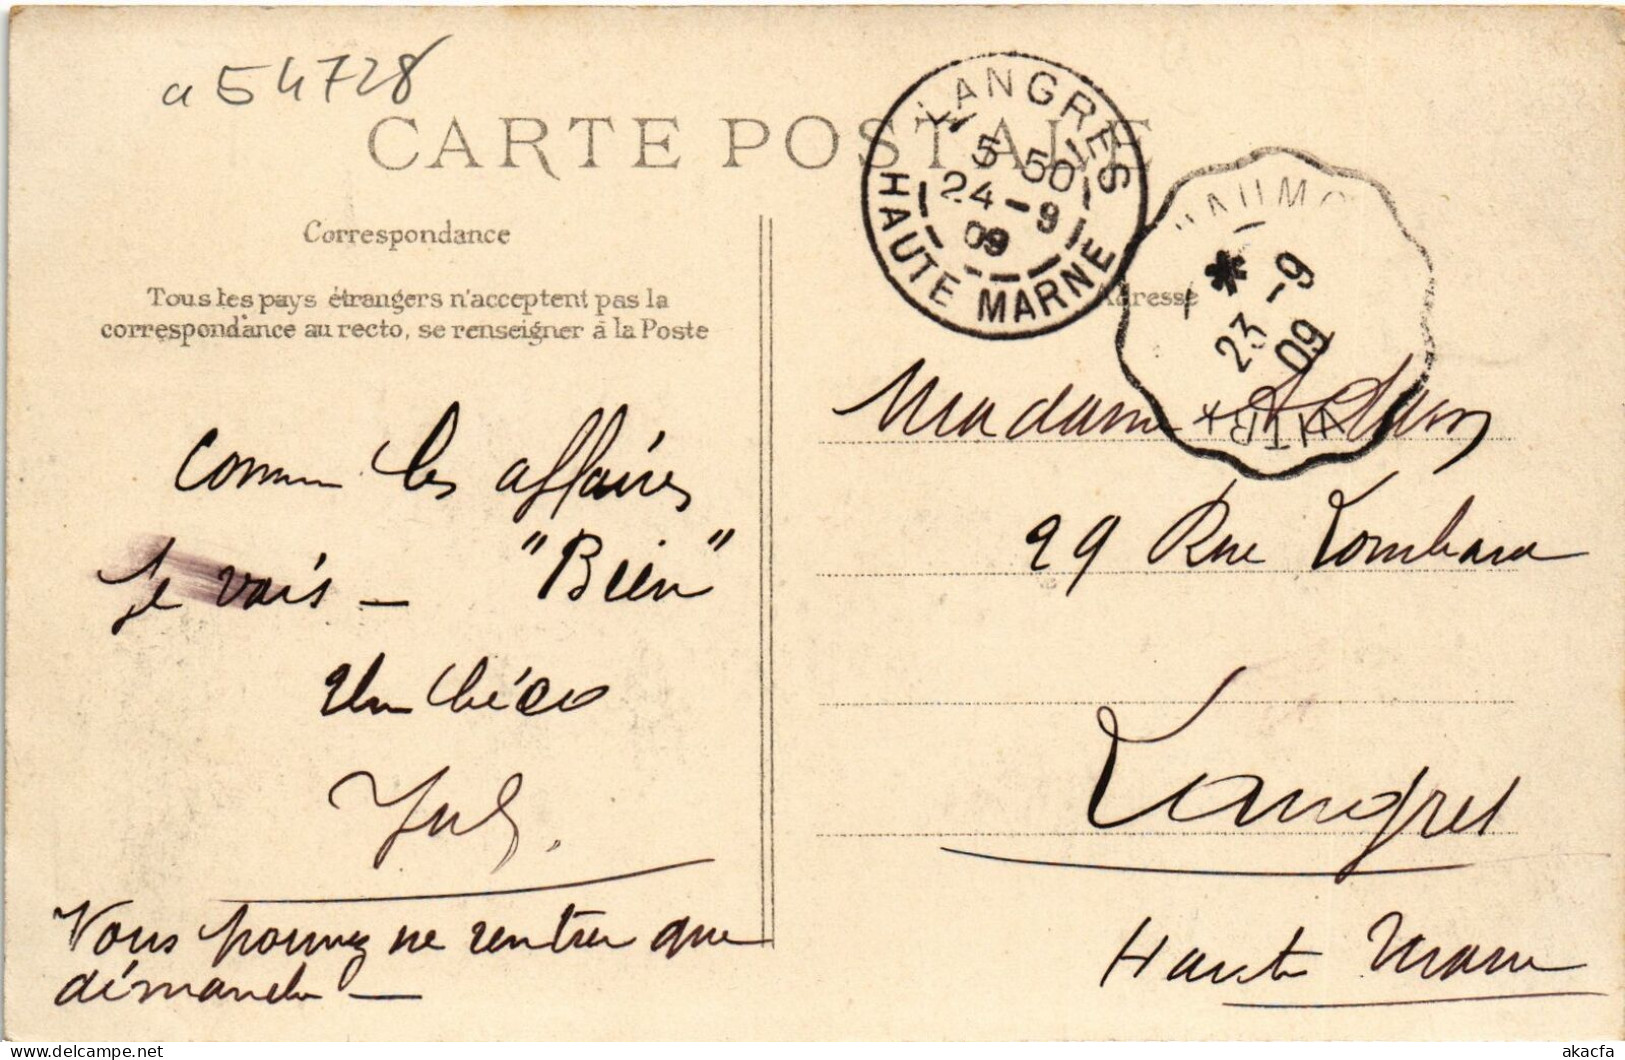 a 54728
CARTE POSTALE
LANGRES
5 50
24-9
09
HAUTE MARNE
*
23-9
09
VITR
Correspondance
Tous les pays étrangers n'acceptent pas la
correspondance au recto, se renseigner à la Poste
Adresse
Comme les affaires
je vais - "Bien"
Un bécO
Jul.
Vous pouvez ne rentrer que
dimanche -
Madame Adam
29 Rue Lombard
Langres
Haute Marne
akacfa